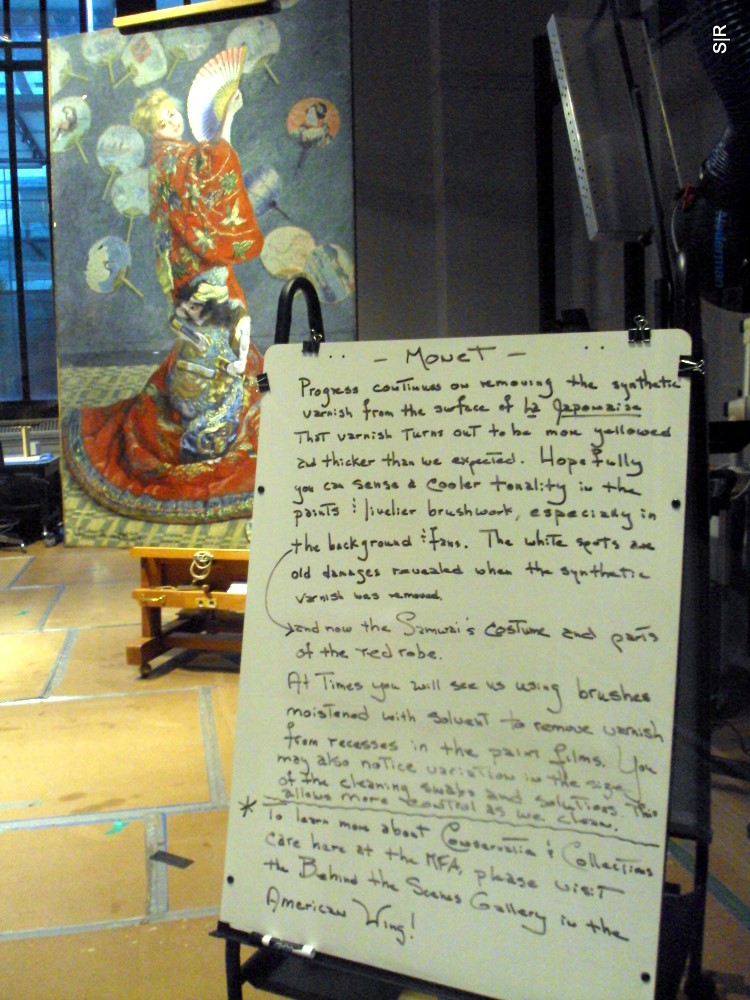 S|R
- Monet -
Progress continues on removing the synthetic
varnish from the surface of La Japonaise
That varnish turns out to be more yellowed
and thicker than we expected. Hopefully
you can sense a cooler tonality in the
paints & livelier brushwork, especially in
the background & fans. The white spots are
old damages revealed when the synthetic
varnish was removed.
and now the Samurai's costume and parts
of the red robe.
At Times you will see us using brushes
moistened with solvent to remove varnish
from recesses in the paint films. You
may also notice variation in the size
of the cleaning swabs and solutions. This
allows more control as we clean.
* To learn more about Conservation & Collections
care here at the MFA, please visit
the Behind the Scenes Gallery in the
American Wing!